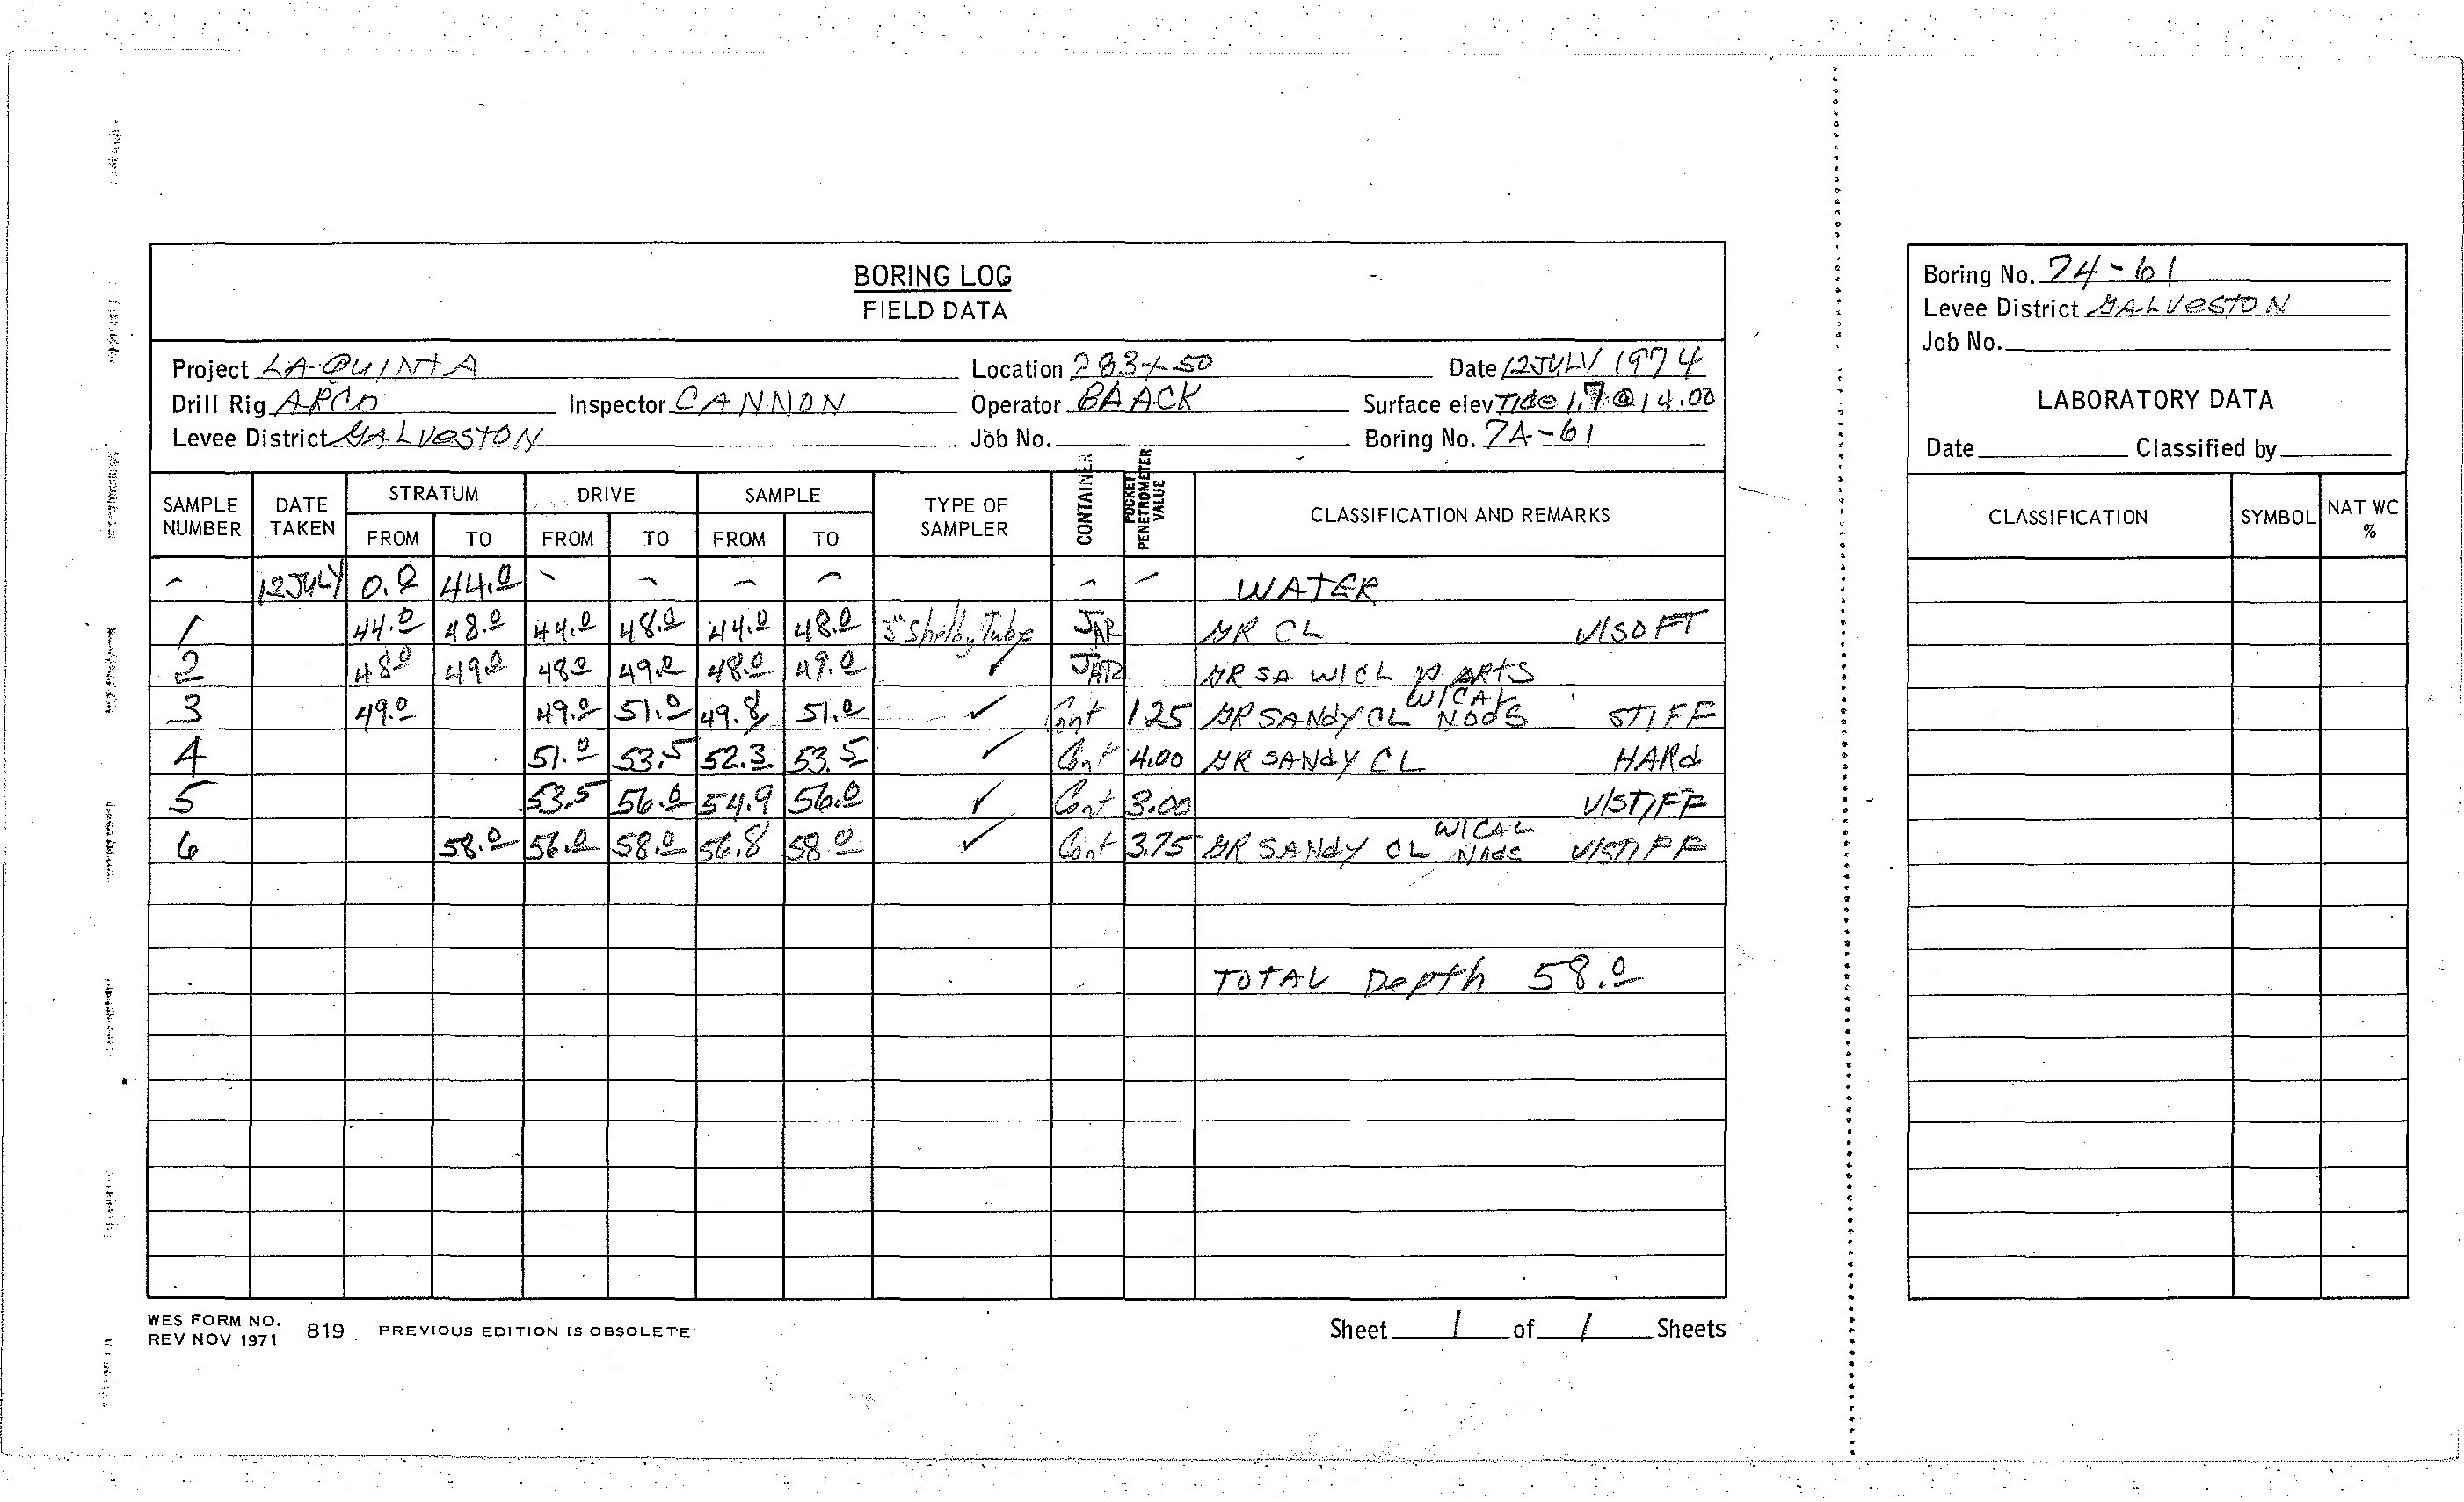 BORING LOG
FIELD DATA
Project LA QUINTA Location 283+50 Date 12 JULY 1974
Drill Rig ARCO Inspector CANNON Operator BAACK Surface elev Tide 1.7 @ 14.00
Levee District GALVESTON Job No. Boring No. 74-61
SAMPLE NUMBER DATE TAKEN STRATUM FROM TO DRIVE FROM TO SAMPLE FROM TO TYPE OF SAMPLER CONTAINER POCKET PENETROMETER VALUE CLASSIFICATION AND REMARKS
- 12 JULY 0.0 44.0 - - - - - - WATER
1 44.0 48.0 44.0 48.0 44.0 48.0 3" Shelby Tube JAR GR CL V/SOFT
2 48.0 49.0 48.0 49.0 48.0 49.0 ✓ JAR GR SA W/CL PARTS
3 49.0 49.0 51.0 49.8 51.0 ✓ Cont 1.25 GR SANDY CL W/CAL NODS STIFF
4 51.0 53.5 52.3 53.5 ✓ Cont 4.00 GR SANDY CL HARd
5 53.5 56.0 54.9 56.0 ✓ Cont 3.00 V/STIFF
6 58.0 56.0 58.0 56.8 58.0 ✓ Cont 3.75 GR SANdY CL W/CAL Nods V/STIFF
TOTAL Depth 58.0
WES FORM NO. 819 PREVIOUS EDITION IS OBSOLETE
REV NOV 1971
Sheet 1 of 1 Sheets
Boring No. 74-61
Levee District GALVESTON
Job No.
LABORATORY DATA
Date Classified by
CLASSIFICATION SYMBOL NAT WC %